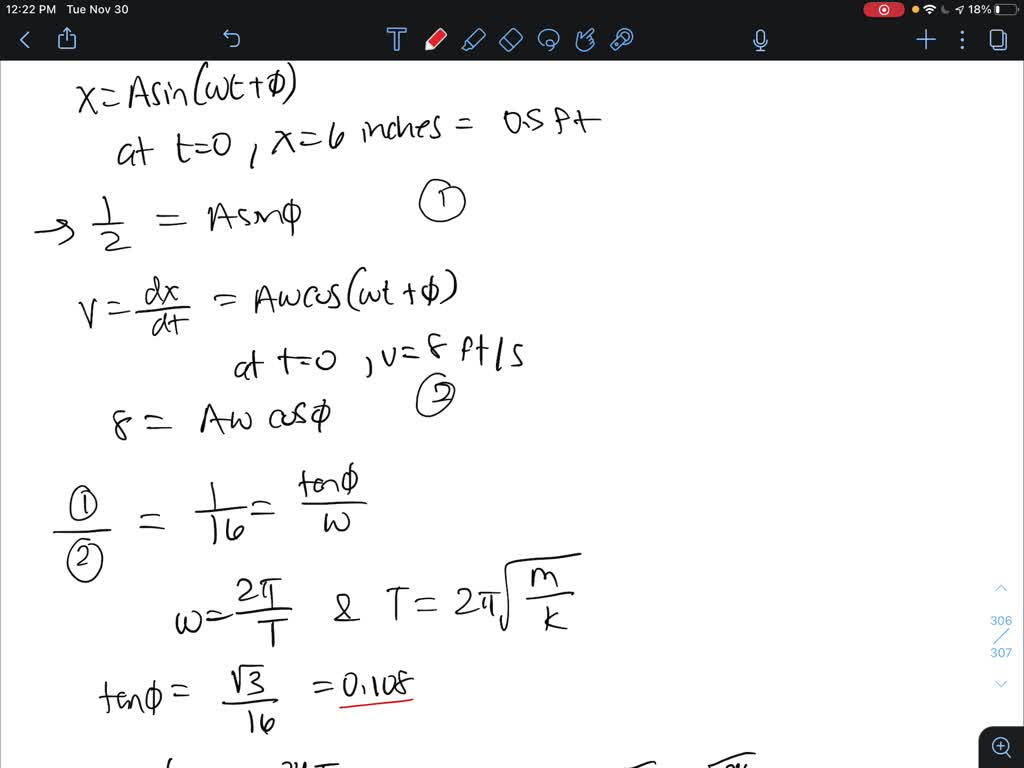 12:22 PM Tue Nov 30 18%
x = Asin(ωt+ϕ)
at t=0, x=6 inches = 0.5 ft
→ 1/2 = Asinϕ ①
v = dx/dt = Aωcos(ωt+ϕ)
at t=0, v=8 ft/s
8 = Aω cosϕ ②
①/② = 1/16 = tanϕ/ω
ω = 2π/T & T = 2π√(m/k)
tanϕ = √3/16 = 0.108
306
307